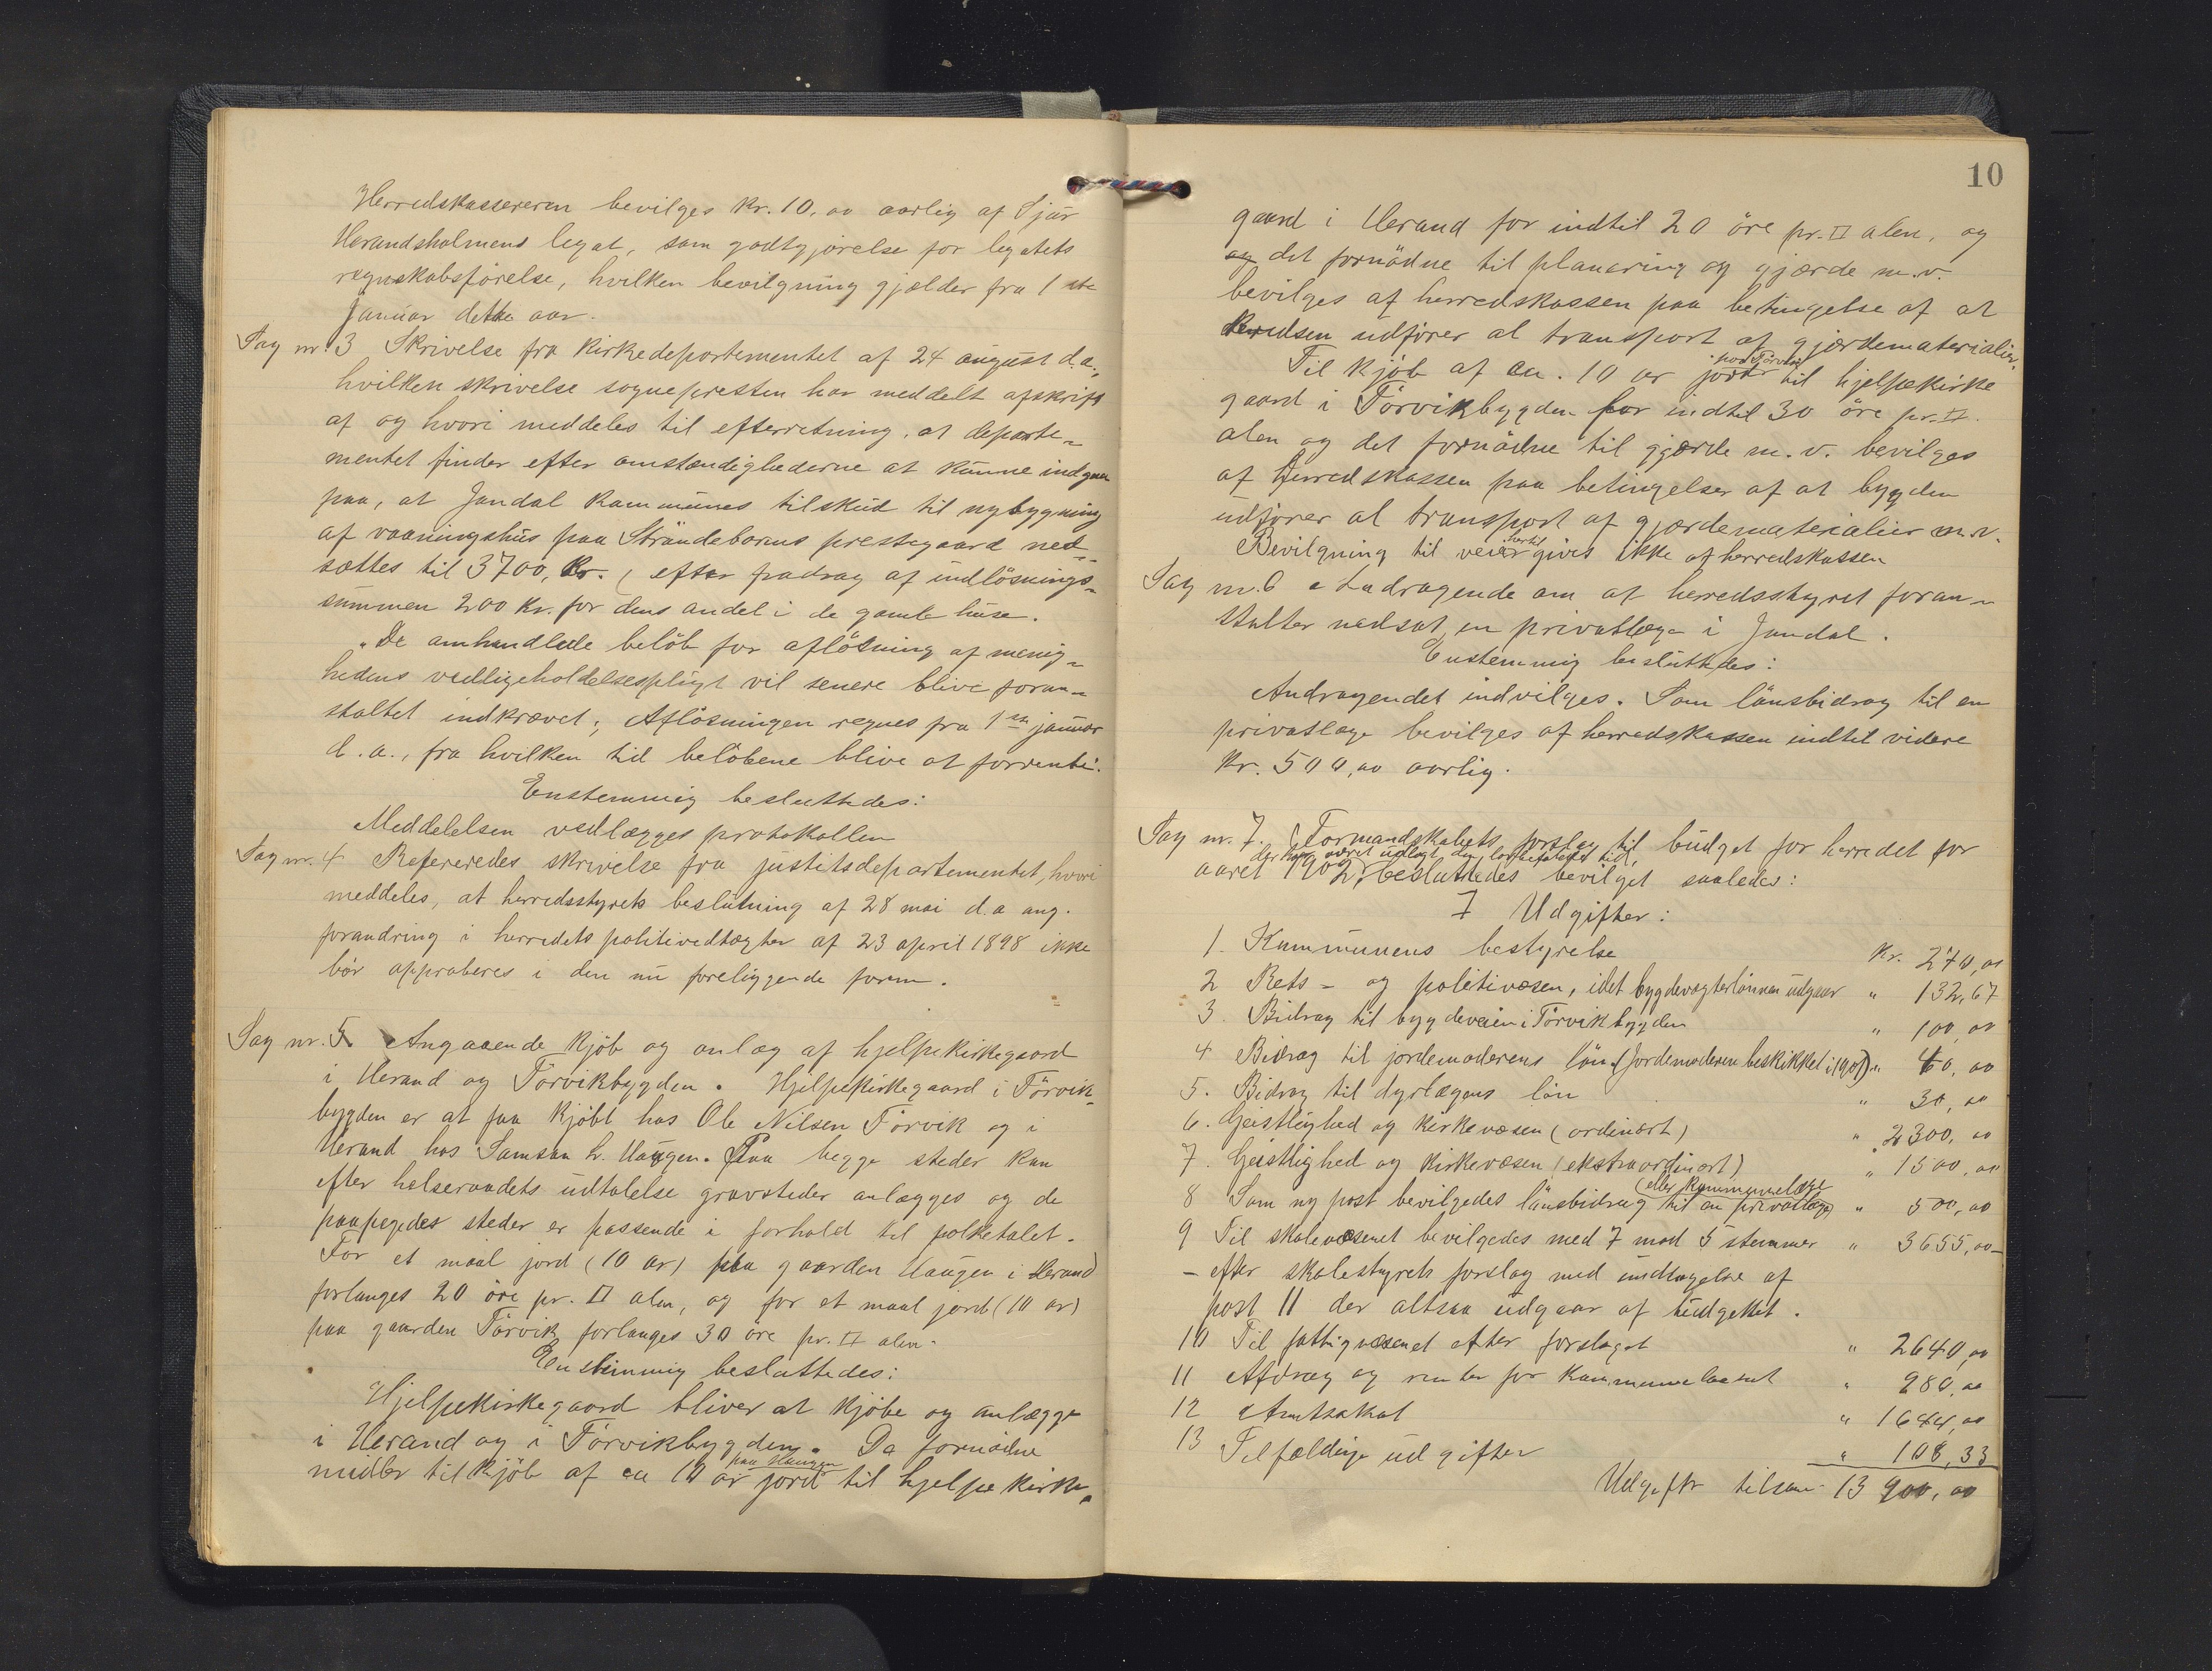 Herredskassereren bevilges kr. 10,00 aarlig af Sjur
Herandsholmens legat, som godtgjörelse for legatets
regnskabsförelse, hvilken bevilgning gjælder fra 1ste
Januar dette aar.
Sag nr. 3 Skrivelse fra kirkedepartementet af 24 august d.a.,
hvilken skrivelse sognepresten har meddelt afskrift
af og hvori meddeles til efterretning, at departe-
mentet finder efter omstændighederne at kunne indgaa
paa, at Jondal kommunes tilskud til nybygning
af vaaningshus paa Strandebarms prestegaard ned-
sættes til 3700, kr. (efter fradrag af indlösnings-
summen 200 kr. for dens andel i de gamle huse.
"De omhandlede belöb for aflösning af menig-
hedens vedligeholdelsespligt vil senere blive foran-
staltet indkrævet; Aflösningen regnes fra 1ste januar
d.a., fra hvilken tid belöbene blive at forrente".
Enstemmig besluttedes:
Meddelelsen vedlægges protokollen
Sag nr. 4 Refereredes skrivelse fra justitsdepartementet, hvori
meddeles, at herredsstyrets beslutning af 28 mai d.a ang.
forandring i herredets politivedtægter af 23 april 1898 ikke
bör approberes i den nu foreliggende form.
Sag nr. 5. Angaaende kjöb og anlæg af hjelpekirkegaard
i Herand og Törvikbygden. Hjelpekirkegaard i Törvik-
bygden er at faa kjöbt hos Ole Nilsen Törvik og i
Herand hos Samson L. Haugen. Paa begge steder kan
efter helseraadets udtalelse gravsteder anlægges og de
paapegedes steder er passende i forhold til folketalet.
For et maal jord (10 ar) paa gaarden Haugen i Herand
forlanges 20 öre pr. □ alen, og for et maal jord (10 ar)
paa gaarden Törvik forlanges 30 öre pr. □ alen.
Enstemmig besluttedes:
Hjelpekirkegaard bliver at kjöbe og anlægge
i Herand og i Törvikbygden. De fornödne
paa Haugen
midler til kjöb af ca 10 ar jord til hjelpekirke-
10
gaard i Herand for indtil 20 öre pr. □ alen, og
og det fornödne til planering og gjærde m.v.
bevilges af herredskassen paa betingelse af at
kredsen udförer al transport af gjærdematerialier.
paa Törvik
Til kjöb af ca. 10 ar jord til hjelpekirke
gaard i Törvikbygden for indtil 30 öre pr. □.
alen og det fornödne til gjærde m.v. bevilges
af herredskassen paa betingelser af at bygden
udförer al transport af gjærdematerialier m.v.
Bevilgning til veier hertil gives ikke af herredskassen
Sag nr. 6 Andragende om at herredsstyret foran-
stalter nedsat en privatlæge i Jondal.
Enstemmig besluttedes:
Andragendet indvilges. Som lönsbidrag til en
privatlæge bevilges af herredskassen indtil videre
kr. 500,00 aarlig.
Sag nr. 7. Formandskabets forslag til budget for herredet for
der har været udlagt den lovbefalede tid,
aaret 1902, besluttedes bevilget saaledes:
I Udgifter:
1. Kommunens bestyrelse kr. 270,00
2 Rets- og politivæsen, idet bygdevægterlönnen udgaar " 132,67
3. Bidrag til bygdeveien i Törvikbygden " 100,00
4 Bidrag til jordemoderens lön (Jordemoderen beskikket i 1901) " 40,00
5. Bidrag til dyrlægens lön " 30,00
6. Geistlighed og kirkevæsen (ordinært) " 2300,00
7. Geistlighed og kirkevæsen (ekstraordinært) " 1500,00
(eller kommunelæge
8 Som ny post bevilgedes lönsbidrag til en privatlæge) " 500,00
9 Til skolevæsenet bevilgedes med 7 mod 5 stemmer " 3655,00
- efter skolestyrets forslag med undtagelse af
post 11 der altsaa udgaar af budgettet.
10 Til fattigvæsenet efter forslaget " 2640,00
11 Afdrag og renter for kommunelaanet " 980,00
12 Amtsskat " 1644,00
13 Tilfældige udgifter " 108,33
Udgifter tilsam. 13 900,00